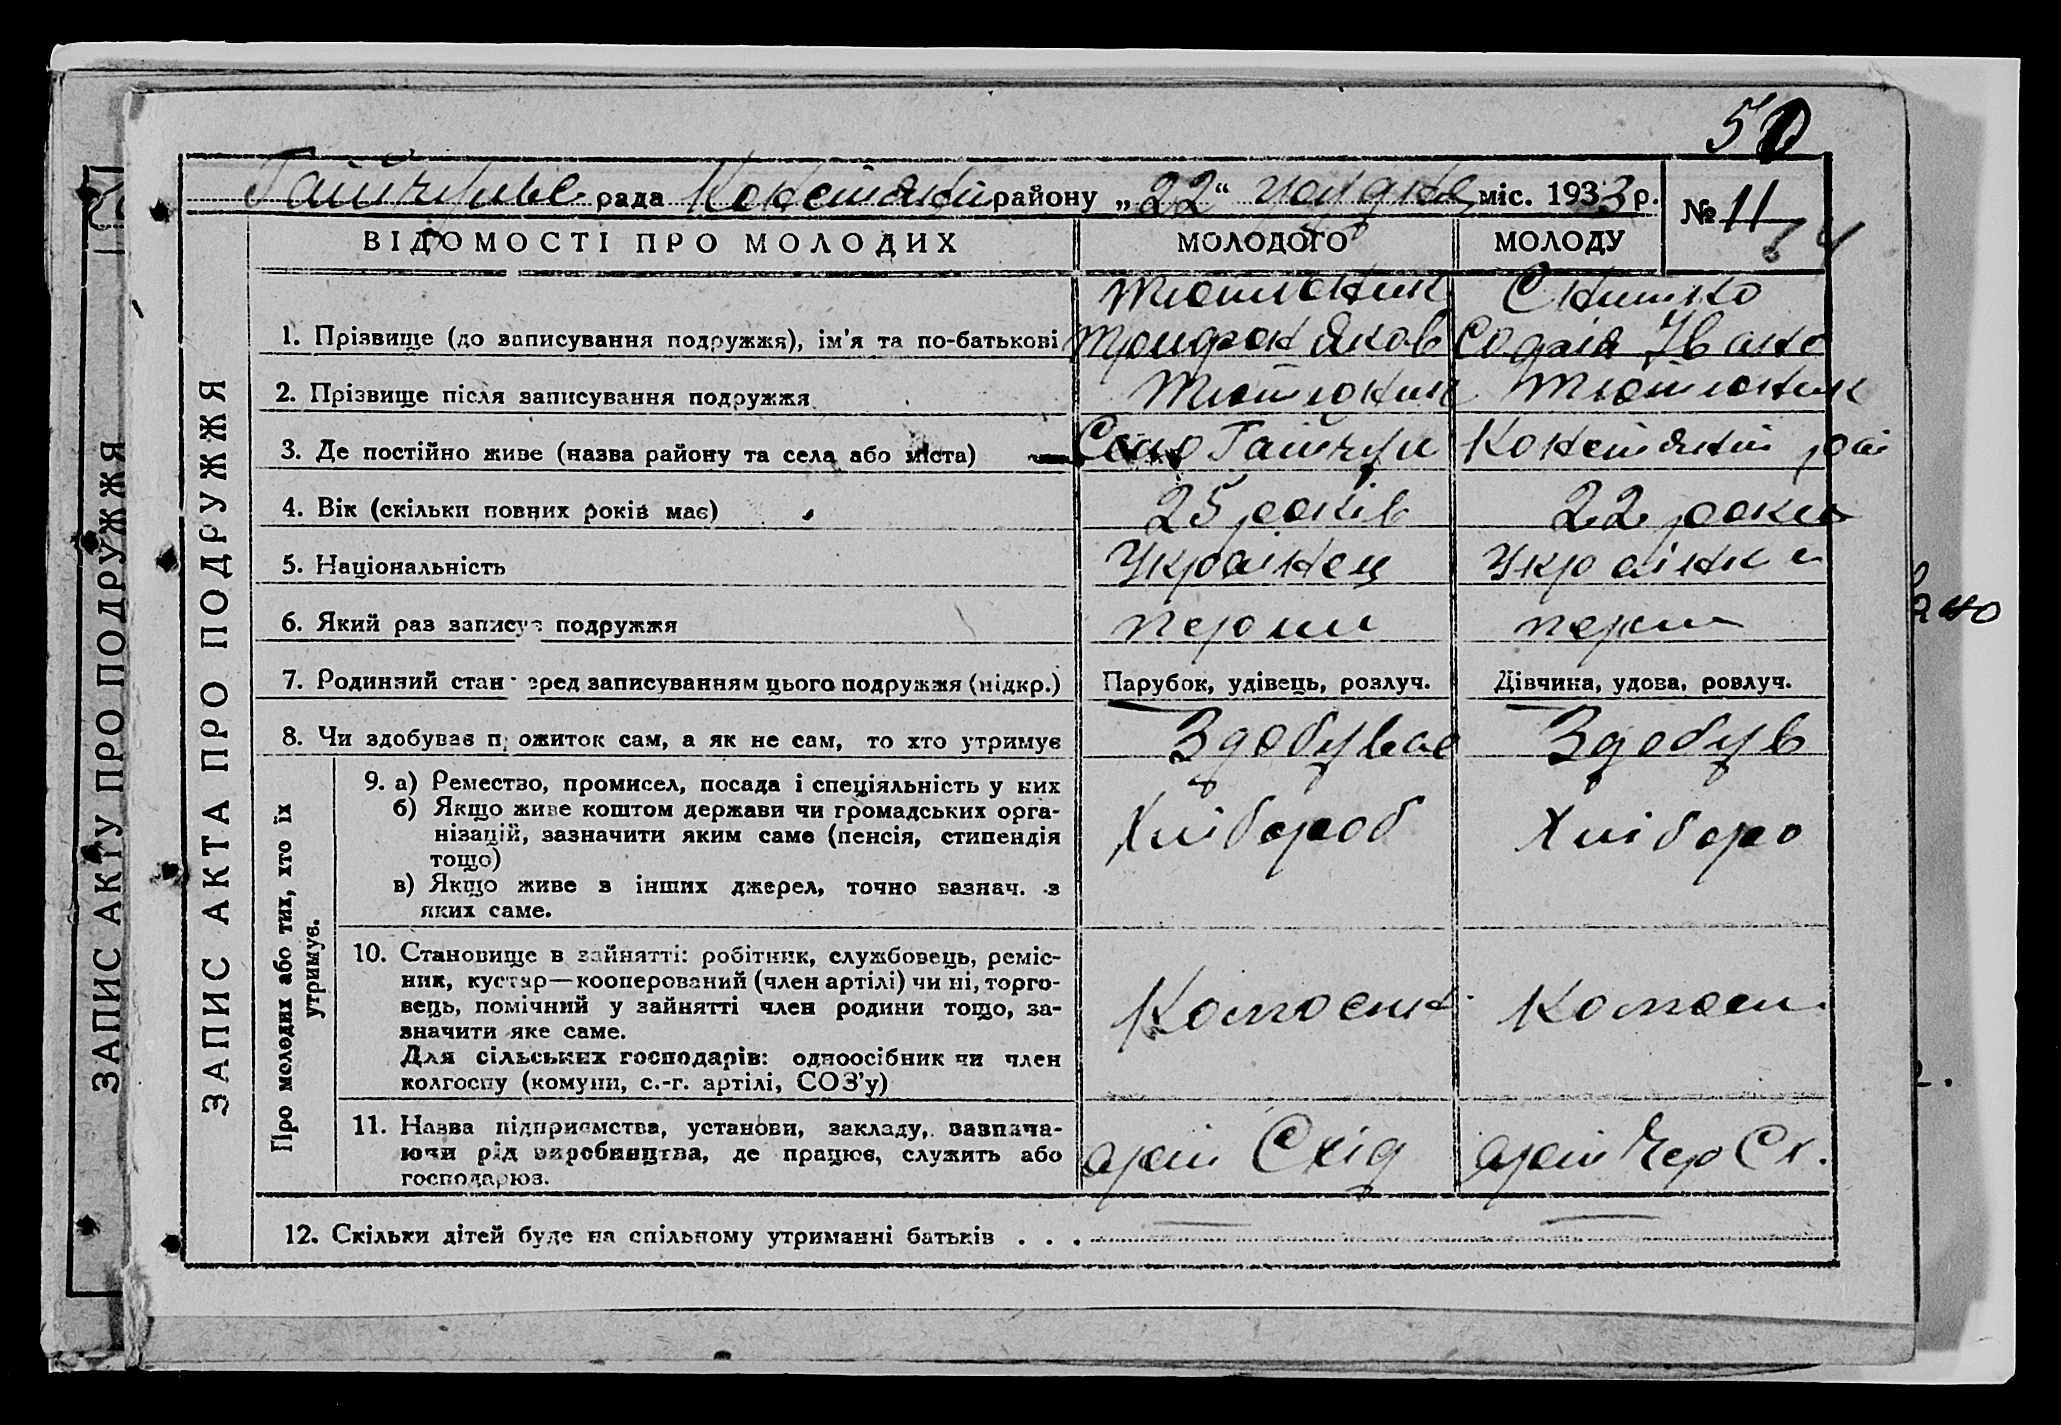 50
Гайчурська рада Констянт району „22“ грудня міс. 1933 р. № 11
ВІДОМОСТІ ПРО МОЛОДИХ МОЛОДОГО МОЛОДУ
Тютюник Снитко
1. Прізвище (до записування подружжя), ім'я та по-батькові Трифон Яков Софія Івано
2. Прізвище після записування подружжя Тютюник Тютюник
3. Де постійно живе (назва району та села або міста) Село Гайчур Констянт рай
4. Вік (скільки повних років має) 25 років 22 роки
5. Національність Українец Українка
6. Який раз записує подружжя перши перш
7. Родинний стан перед записуванням цього подружжя (підкр.) Парубок, удівець, розлуч. Дівчина, удова, розлуч.
8. Чи здобуває прожиток сам, а як не сам, то хто утримує Здобуває Здобув
9. а) Ремество, промисел, посада і спеціяльність у них
б) Якщо живе коштом держави чи громадських орга-
нізацій, зазначити яким саме (пенсія, стипендія
тощо)
Хлібороб Хліборо
в) Якщо живе з інших джерел, точно зазнач. з
яких саме.
10. Становище в зайнятті: робітник, службовець, реміс-
ник, кустар—кооперований (член артілі) чи ні, торго-
вець, помічний у зайнятті член родини тощо, за-
значити яке саме.
Для сільських господарів: одноосібник чи член
колгоспу (комуни, с.-г. артілі, СОЗ'у)
11. Назва підприємства, установи, закладу, зазнача-
ючи рід виробництва, де працює, служить або
господарює.
арт Схід арт Чер Ст.
12. Скільки дітей буде на спільному утриманні батьків . . .
Про молодих або тих, хто їх
утримує.
ЗАПИС АКТА ПРО ПОДРУЖЖЯ
ЗАПИС АКТУ ПРО ПОДРУЖЖЯ